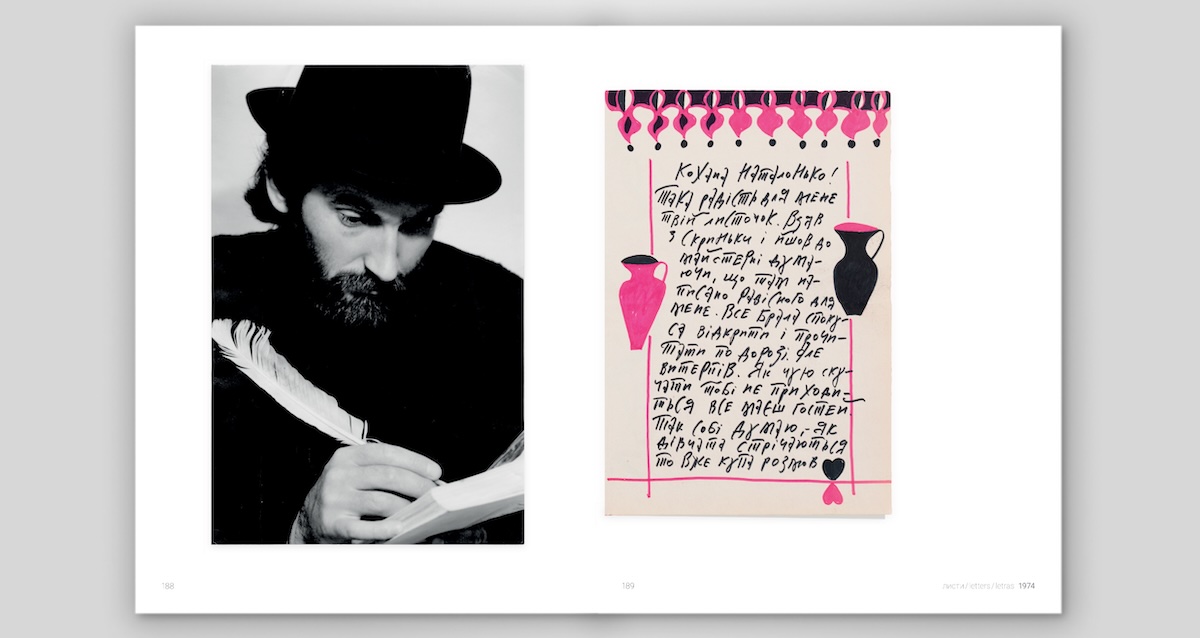 Кохана Наталонько!
Така радість для мене
твій листочок. Взяв
з скриньки і йшов до
майстерні дума-
ючи, що там на-
писано радісного для
мене. Все брала споку-
са відкрити і прочи-
тати по дорозі, але
витерпів. Як чую ску-
чати тобі не приходи-
ться все маєш гостей.
Так собі думаю,- як
дівчата стрічаються
то вже купа розмов
188
189
листи / letters / letras 1974